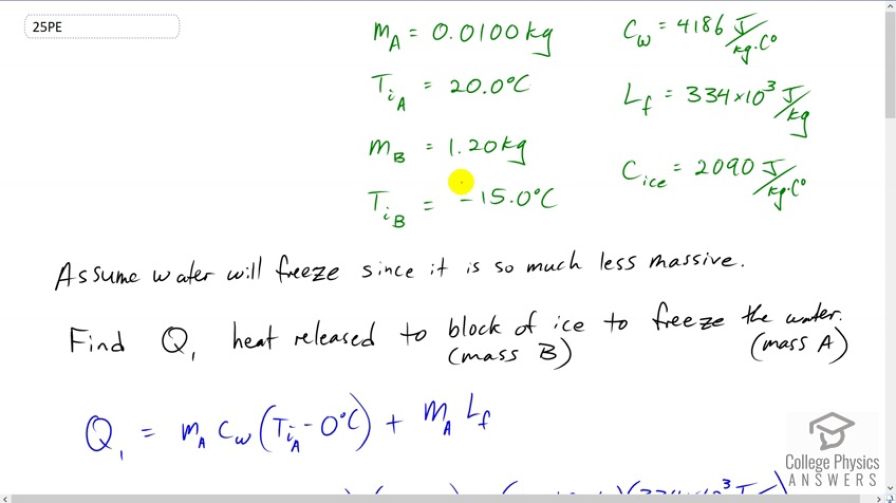 25PE
m_A = 0.0100 kg
C_w = 4186 J/kg·C°
T_iA = 20.0°C
L_f = 334×10³ J/kg
m_B = 1.20 kg
C_ice = 2090 J/kg·C°
T_iB = -15.0°C
Assume water will freeze since it is so much less massive.
Find Q₁ heat released to block of ice to freeze the water.
(mass B) (mass A)
Q₁ = m_A C_w (T_iA - 0°C) + m_A L_f
College Physics
ANSWERS